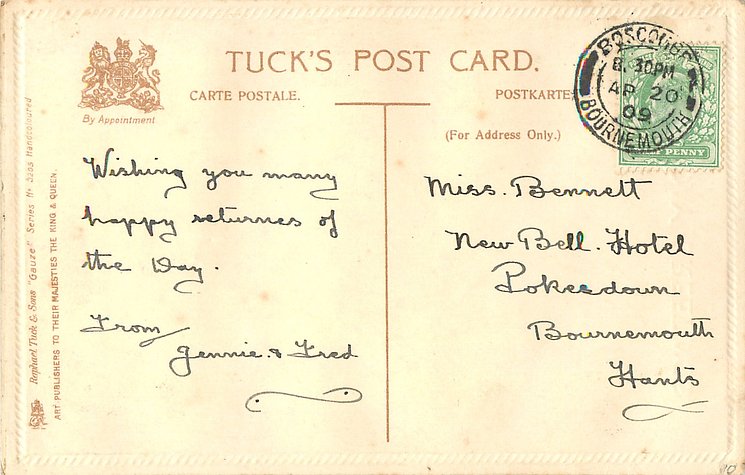 TUCK'S POST CARD.
CARTE POSTALE.
POSTKARTE
By Appointment
(For Address Only.)
BOSCOMBE
8.30PM
AP 20
09
BOURNEMOUTH
PENNY
Wishing you many
happy returnes of
the Day.
From
Jennie & Fred
Miss. Bennett
New Bell. Hotel
Pokesdown
Bournemouth
Hants
Raphael Tuck & Sons "Gauze" Series Handcoloured
ART PUBLISHERS TO THEIR MAJESTIES THE KING & QUEEN.